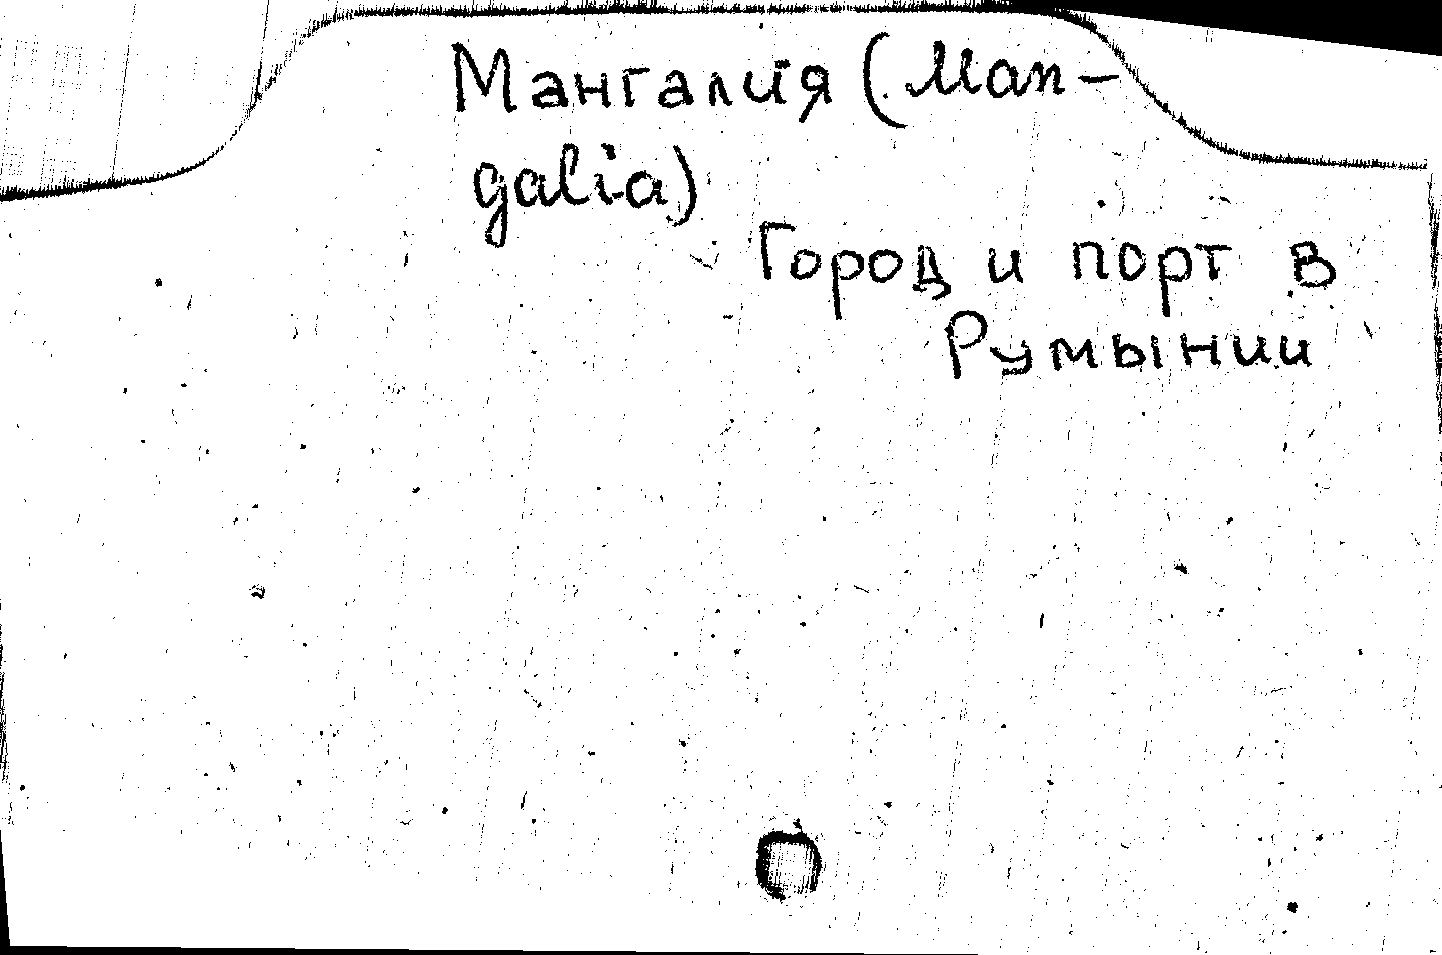 Мангалия (Man-
galia)
Город и порт в
Румынии